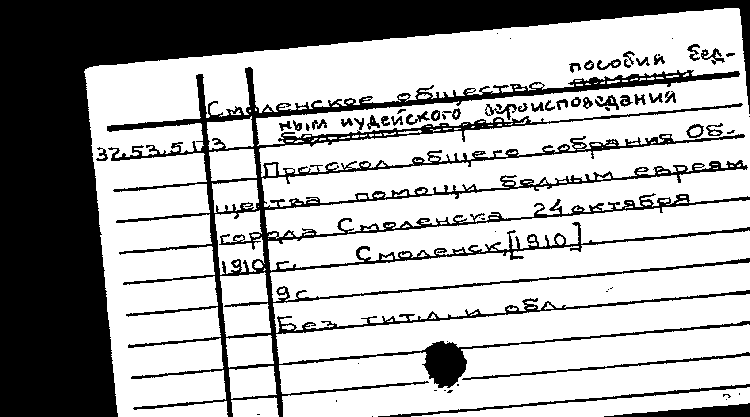 пособия бед-
Смоленское общество помощи
ным иудейского вероисповедания
бедным евреям.
37.53.5.173
Протокол общего собрания Об-
щества помощи бедным евреям
города Смоленска 24 октября
1910 г. Смоленск, [1910].
9 с.
Без тит. л. и обл.